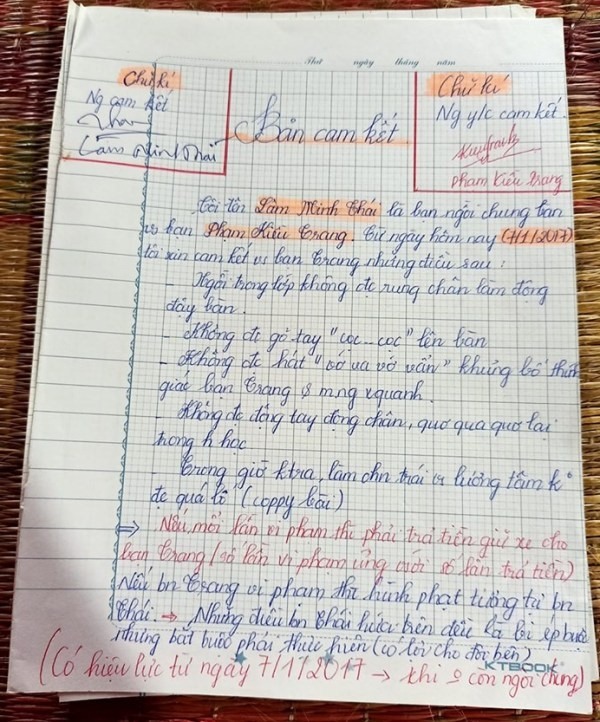 Thứ ngày tháng năm
Chữ kí
Ng cam kết
Lâm Minh Thái
Chữ kí
Ng y/c cam kết
Phạm Kiều Trang
Bản cam kết
Tôi tên Lâm Minh Thái là bạn ngồi chung bàn
vs bạn Phạm Kiều Trang. Từ ngày hôm nay (7/1/2017)
tôi xin cam kết vs bạn Trang những điều sau:
- Ngồi trong lớp không đc rung chân làm động
đậy bàn.
- Không đc gõ tay "cọc...cọc" lên bàn
- Không đc hát "vớ va vớ vẩn" khủng bố thính
giác bạn Trang & mng xquanh.
- Không đc động tay động chân, quơ qua quơ lại
trong h học
- Trong giờ ktra, làm chn trái vs lương tâm k
đc quá lố (coppy bài)
⇒ Nếu, mỗi lần vi phạm thì phải trả tiền giữ xe cho
bạn Trang (số lần vi phạm ứng với số lần trả tiền)
Nếu bn Trang vi phạm thì hình phạt tương tự bn
Thái. → Những điều bn Thái hứa trên đều là bị ép buộc
nhưng bắt buộc phải thực hiện (có lợi cho đôi bên)
KTBOOK
(Có hiệu lực từ ngày 7/1/2017 → khi còn ngồi chung)